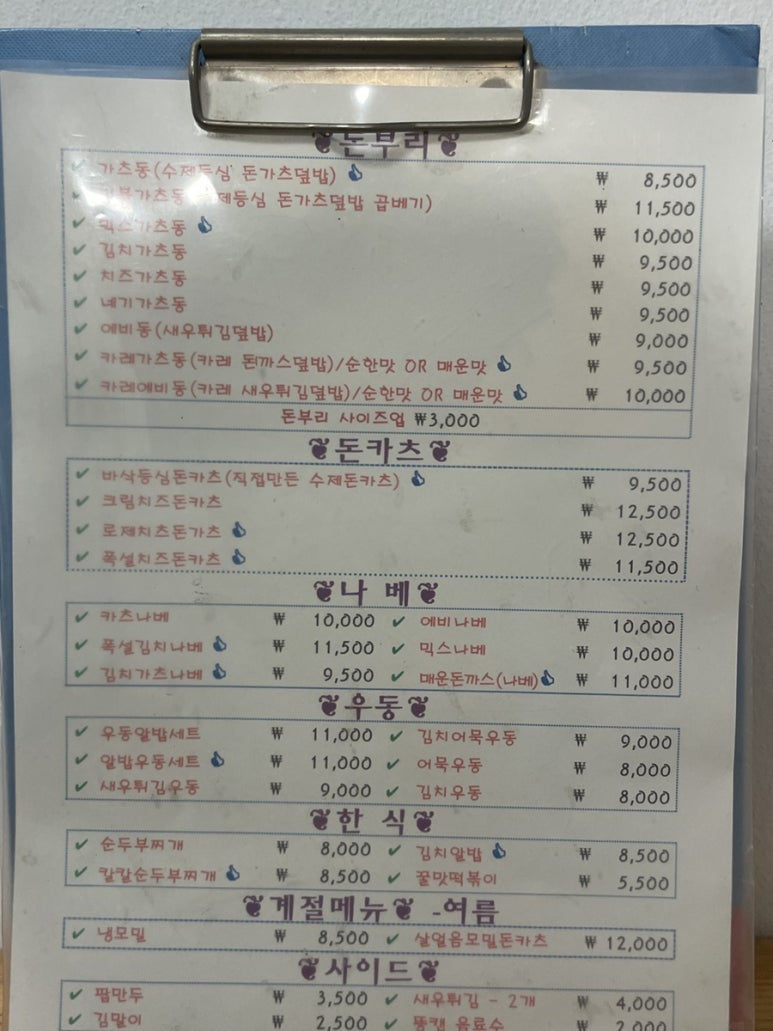 돈부리
✔ 가츠동(수제등심 돈가츠덮밥) ₩ 8,500
가츠동 등심 돈가츠덮밥 곱베기) ₩ 11,500
✔ 믹스가츠동 ₩ 10,000
✔ 김치가츠동 ₩ 9,500
✔ 치즈가츠동 ₩ 9,500
✔ 네기가츠동 ₩ 9,500
✔ 에비동(새우튀김덮밥) ₩ 9,000
✔ 카레가츠동(카레 돈까스덮밥)/순한맛 OR 매운맛 ₩ 9,500
✔ 카레에비동(카레 새우튀김덮밥)/순한맛 OR 매운맛 ₩ 10,000
돈부리 사이즈업 ₩3,000
돈카츠
✔ 바삭등심돈카츠(직접만든 수제돈카츠) ₩ 9,500
✔ 크림치즈돈카츠 ₩ 12,500
✔ 로제치츠돈가츠 ₩ 12,500
✔ 폭설치즈돈카츠 ₩ 11,500
나 베
✔ 카츠나베 ₩ 10,000 ✔ 에비나베 ₩ 10,000
✔ 폭설김치나베 ₩ 11,500 ✔ 믹스나베 ₩ 10,000
✔ 김치가츠나베 ₩ 9,500 ✔ 매운돈까스(나베) ₩ 11,000
우동
✔ 우동알밥세트 ₩ 11,000 ✔ 김치어묵우동 ₩ 9,000
✔ 알밥우동세트 ₩ 11,000 ✔ 어묵우동 ₩ 8,000
✔ 새우튀김우동 ₩ 9,000 ✔ 김치우동 ₩ 8,000
한 식
✔ 순두부찌개 ₩ 8,000 ✔ 김치알밥 ₩ 8,500
✔ 칼칼순두부찌개 ₩ 8,500 ✔ 꿀맛떡볶이 ₩ 5,500
계절메뉴 -여름
✔ 냉모밀 ₩ 8,500 ✔ 살얼음모밀돈카츠 ₩ 12,000
사이드
✔ 팝만두 ₩ 3,500 ✔ 새우튀김 - 2개 ₩ 4,000
✔ 김말이 ₩ 2,500 ✔ 뚱캔 음료수 ₩ 2,000